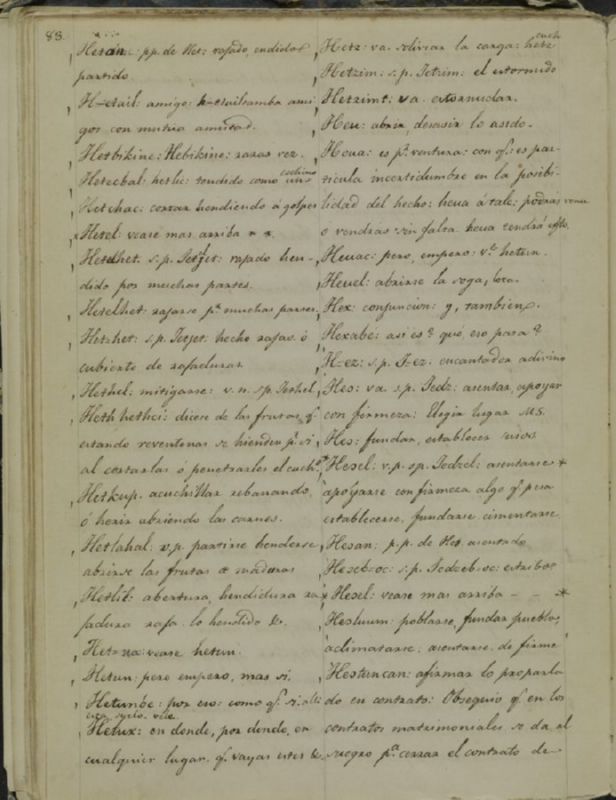 88.
Hetan: pp. de Het: rajado, endidos
partido
H-etail: amigo: h-etailtamba ami
gos con mutua amistad.
Hetbikine: Hebikine: raras vez.
Hetecbal: hetlic: tendido como cochino
Hetchac: cortar hendiendo á golpes
Hetel: vease mas arriba
Hetelhet. s.p. Jetjet: rajado hen-
dido por muchas partes.
Hetelhet: rajarse pr. muchas partes.
Hethet: s.p. Jetjet: hecho rajas ó
cubierto de rajaduras
Hethel: mitigarse: v.n. sp. Jethel
Heth hethci: dicese de las frutas, q.
estando reventonas se hienden p. si
al cortarlas ó penetrarles el cuch.
Hetkup. acuchillar rebanando,
ó herir abriendo las carnes.
Hetlahal: v.p. partirse henderse
abrirse las frutas de maduras
Hetlil: abertura, hendidura ra
jadura raja lo hendido &.
Het-na: vease hetun.
Hetun: pero empero, mas si.
Hetunóc: por eso: como q.
Hetux: en donde, por donde, en
cualquier lugar. q. vayas estes &.
Hetz: va. aliviar la carga: hetz cuch
Hetzim: s.p. Jetzim: el estornudo
Hetzimt: va. estornudar.
Heu: abrir, desasir lo asido.
Heua: es pr. ventura: con q. es par-
ticula incertidumbre en la posibi-
lidad del hecho: heua á tale: podrás venir
o vendras sin falta heua tendrá efto.
Heuac: pero, empero: v. hetun.
Heuel: abrirse la soga, boca.
Hex: conjuncion: y, tambien.
Hexabe: asi es? qué, eso pasa?
H-ez: s.p. J-ez. encantador adivino
Hes: va. s.p. Jedz: asentar, apoyar
con firmeza: Elegir lugar MS.
Hes: fundar, establecer
Hesel: v.p. sp. Jedzel: asentarse
apoyarse con firmeza algo q. pesa
establecerse, fundarse: cimentarse
Hesan: p.p. de Hes asentado
Heseb-oc: s.p. Jedzeb-oc: estribos
Hesel: vease mas arriba - - *
Hesluum: poblarse, fundar pueblos,
aclimatarse, asentarse de firme
Hestuncan: afirmar lo proparla
do en contrato: Obsequio q. en los
contratos matrimoniales se da al
suegro pa. cerrar el contrato de